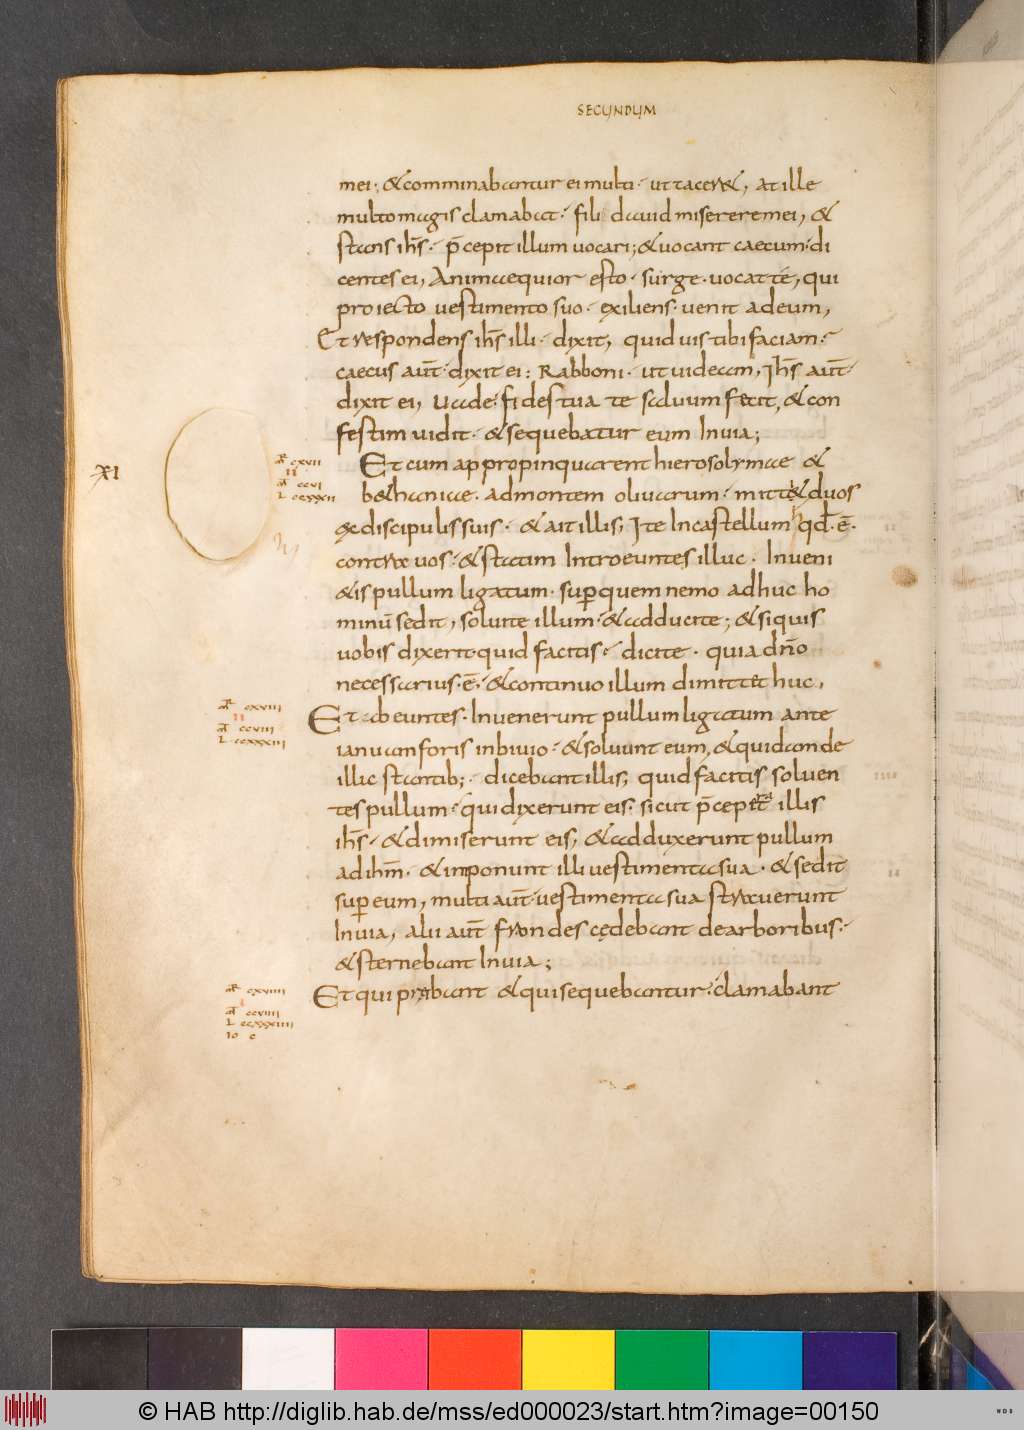 SECUNDUM
mei; & comminabantur ei multi · ut tacer&, at ille
multo magis clamabat · fili dauid miserere mei, &
stans ih̄s · p̄cepit illum uocari; & uocant caecum · di
centes ei, Animaequior esto · surge · uocat te, qui
proiecto uestimento suo · exiliens · uenit ad eum,
Et respondens ih̄s illi · dixit, quid uis tibi faciam ·
caecus aut̄ · dixit ei : Rabboni · ut uideam, Ih̄s aut̄ ·
dixit ei, Uade · fides tua te saluum fecit, & con
festim uidit · & sequebatur eum In uia;
XI
mr̄ cxvii
II
mt̄ ccvi
L ccxxxii
Et cum appropinquarent hierosolymae &
b&haniae · ad montem oliuarum · mitt& duos
ex discipulis suis · & ait illis, Ite In castellum qd̄ · ē ·
contra uos · & statim Introeuntes illuc · Inueni
&is pullum ligatum · sup quem nemo adhuc ho
minū sedit, soluite illum · & adducite; & si quis
uobis dixerit · quid facitis · dicite · quia dn̄o
necessarius · ē, & continuo illum dimittet huc,
mr̄ cxviii
II
mt̄ ccviii
L ccxxxiii
Et abeuntes · Inuenerunt pullum ligatum ante
ianuam foris in biuio · & soluunt eum, & quidam de
illic stantib; · dicebant illis, quid facitis soluen
tes pullum · qui dixerunt eis · sicut p̄ceperat illis
ih̄s · & dimiserunt eis, & adduxerunt pullum
ad ihm̄ · & inponunt illi uestimenta sua · & sedit
sup eum, multi aut̄ · uestimenta sua strauerunt
In uia, alii aut̄ frondes cędebant de arboribus ·
& sternebant In uia;
mr̄ cxviiii
I
mt̄ ccviiii
L ccxxxiiii
Io c
Et qui praeibant & qui sequebantur · clamabant
© HAB http://diglib.hab.de/mss/ed000023/start.htm?image=00150
WDB